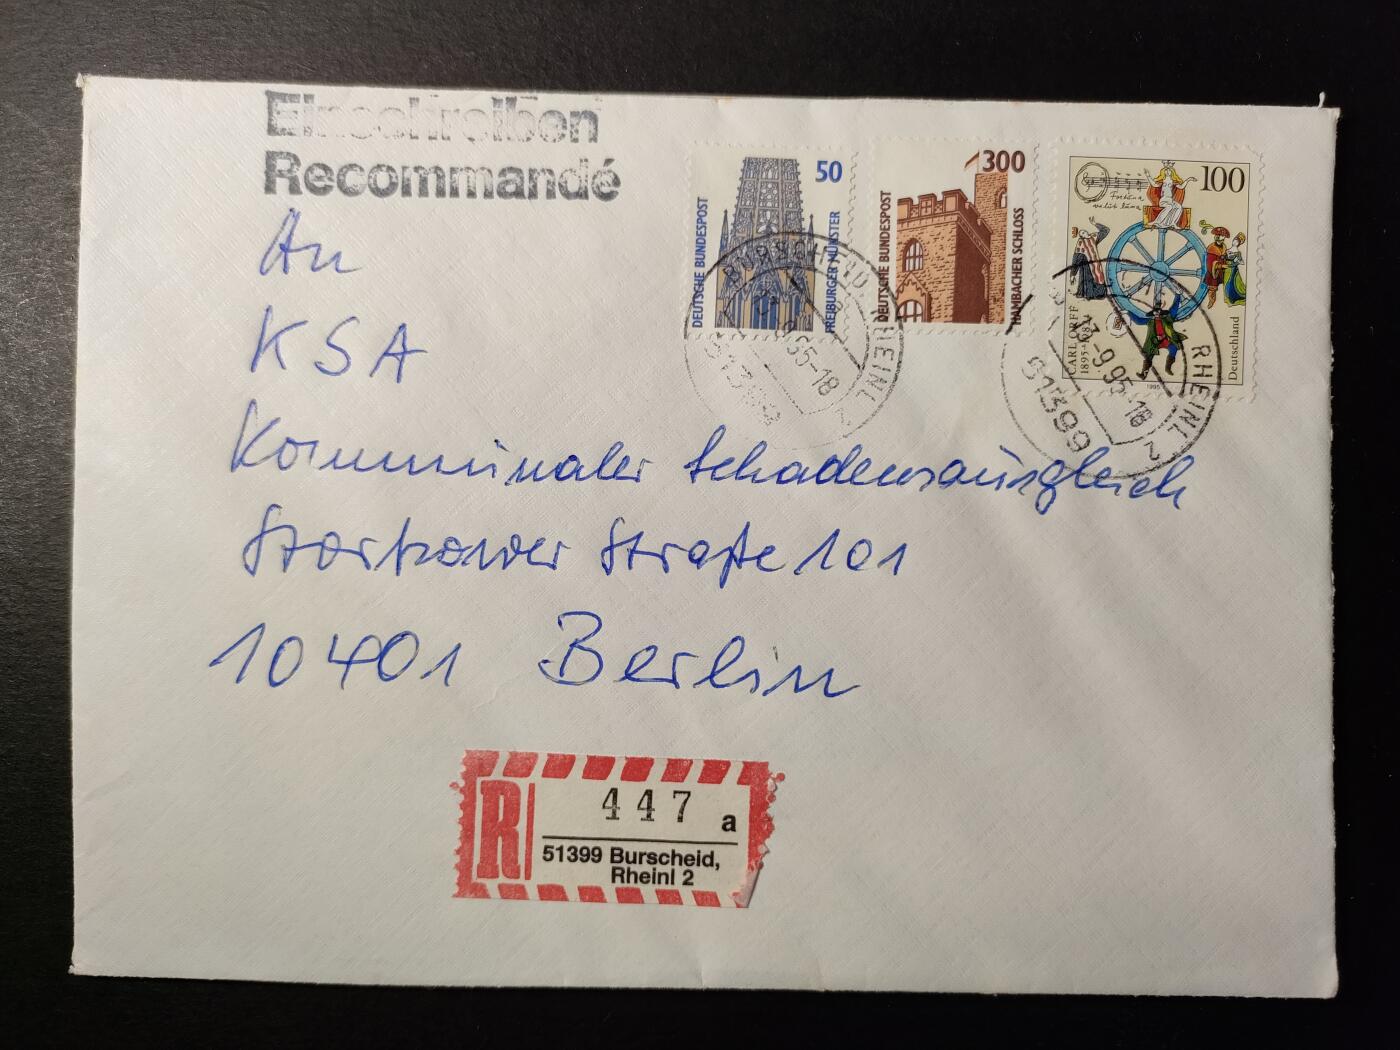 Einschreiben
Recommandé
50
DEUTSCHE BUNDESPOST
FREIBURGER MÜNSTER
300
DEUTSCHE BUNDESPOST
HAMBACHER SCHLOSS
100
Fortuna
velut luna
CARL ORFF
1895-1982
Deutschland
1995
BURSCHEID, RHEINL 2
9.95-18
51399
RHEINL 2
13.-9.95-18
51399
An
KSA
Kommunaler Schadensausgleich
Storkower Straße 101
10401 Berlin
R
447
a
51399 Burscheid,
Rheinl 2